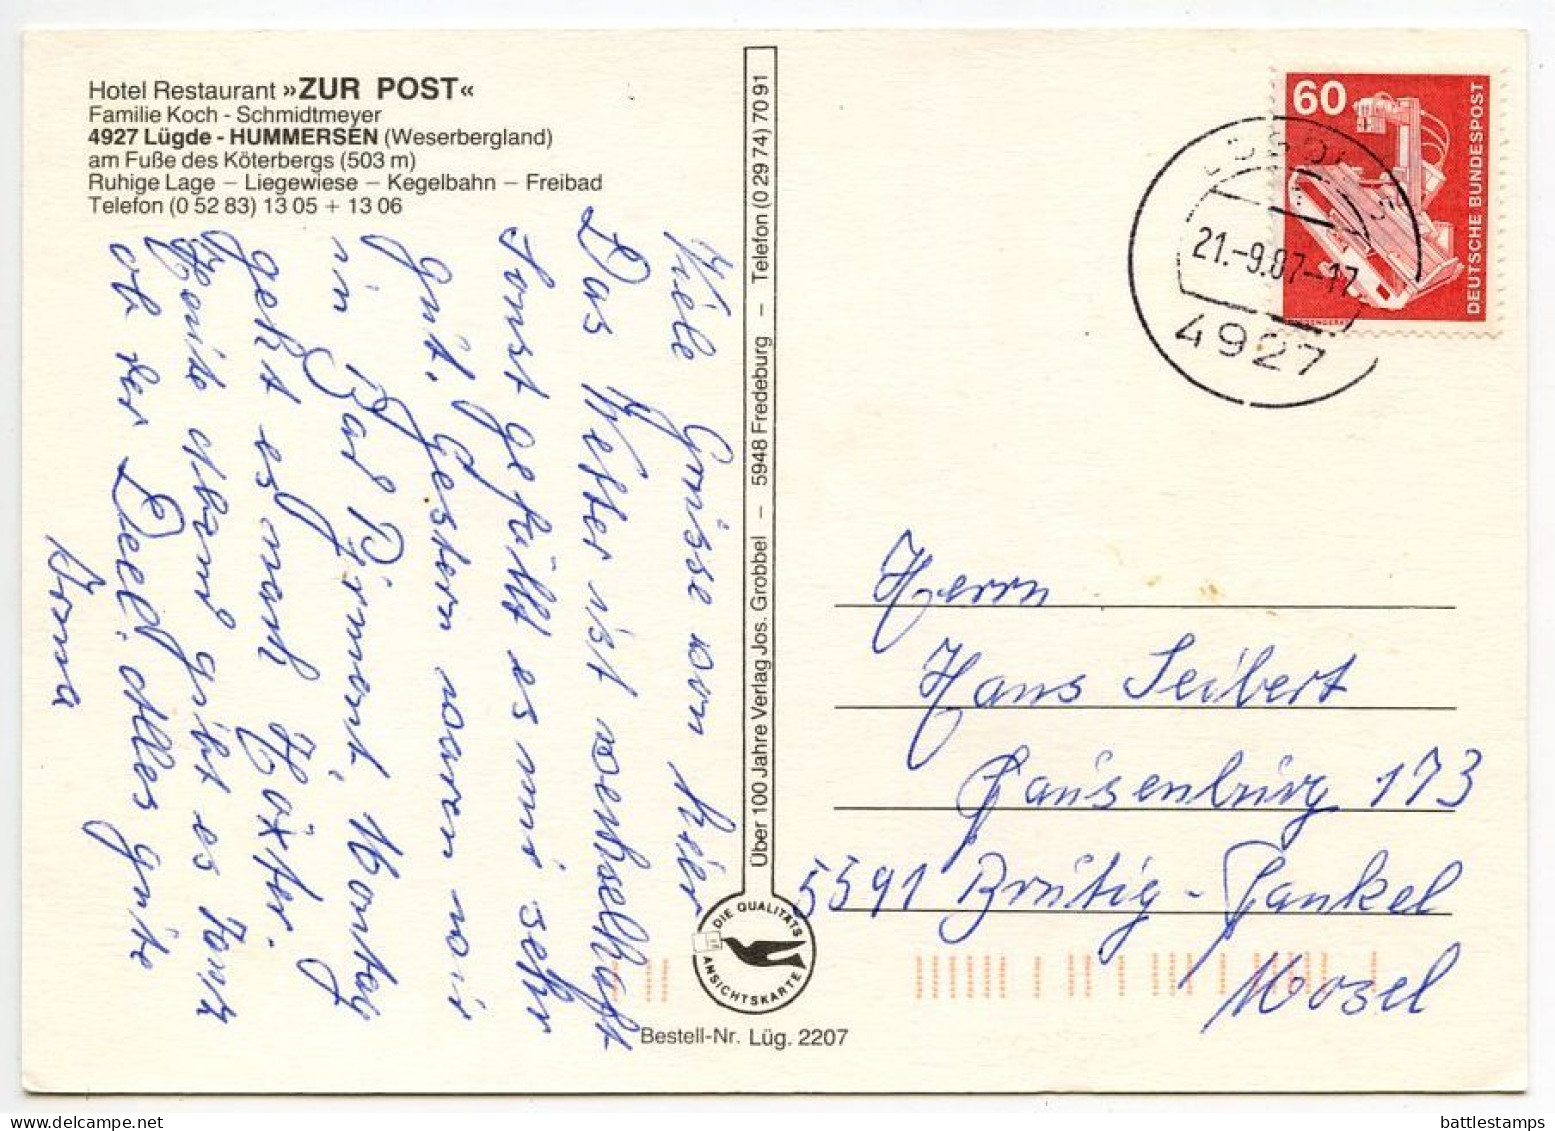 Hotel Restaurant »ZUR POST«
Familie Koch - Schmidtmeyer
4927 Lügde - HUMMERSEN (Weserbergland)
am Fuße des Köterbergs (503 m)
Ruhige Lage – Liegewiese – Kegelbahn – Freibad
Telefon (0 52 83) 13 05 + 13 06
Viele Grüsse von hier
Das Wetter ist wechselhaft
sonst gefällt es mir sehr
gut. Gestern waren wir
in Bad Pyrmont, Montag
geht es nach Höxter.
Heute Abend gibt es Tanz
ob der Deel. Alles gute
Irma
Über 100 Jahre Verlag Jos. Grobbel – 5948 Fredeburg – Telefon (0 29 74) 70 91
DIE QUALITÄTS
ANSICHTSKARTE
Bestell-Nr. Lüg. 2207
60
DEUTSCHE BUNDESPOST
21.-9.87-17
4927
Herrn
Hans Seibert
173
5591 Bruttig-Fankel
Mosel
battlestamps